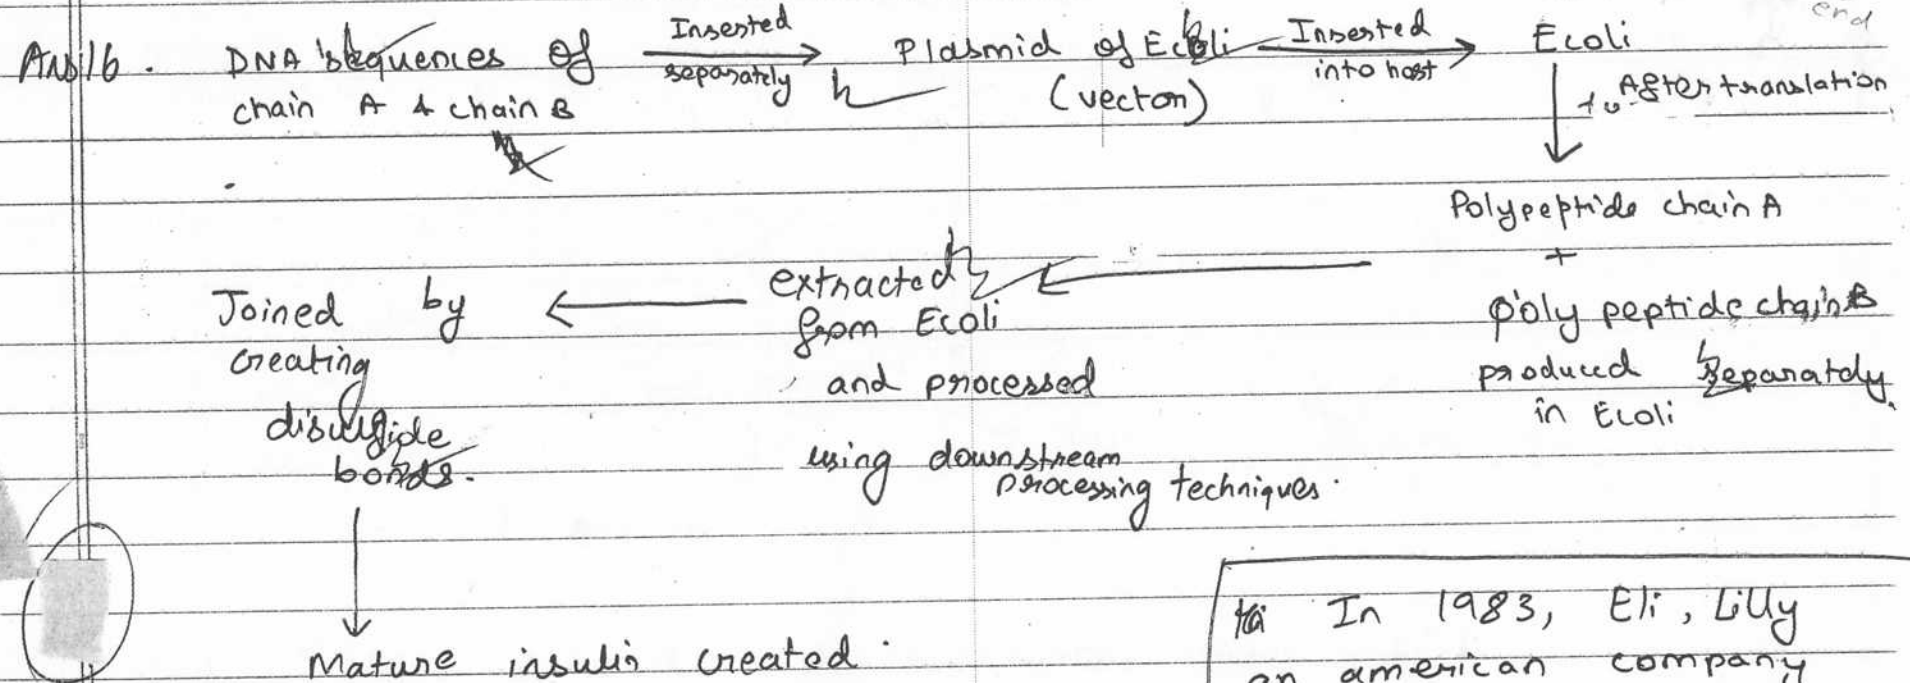 end
Ans16. DNA sequences of
chain A & chain B
Inserted
separately
Plasmid of Ecoli
(vector)
Inserted
into host
Ecoli
After translation
Polypeptide chain A
+
poly peptide chain B
produced separately
in Ecoli
extracted
from Ecoli
and processed
using downstream
processing techniques.
Joined by
creating
disulfide
bonds.
Mature insulin created.
In 1983, Eli, Lilly
an american company